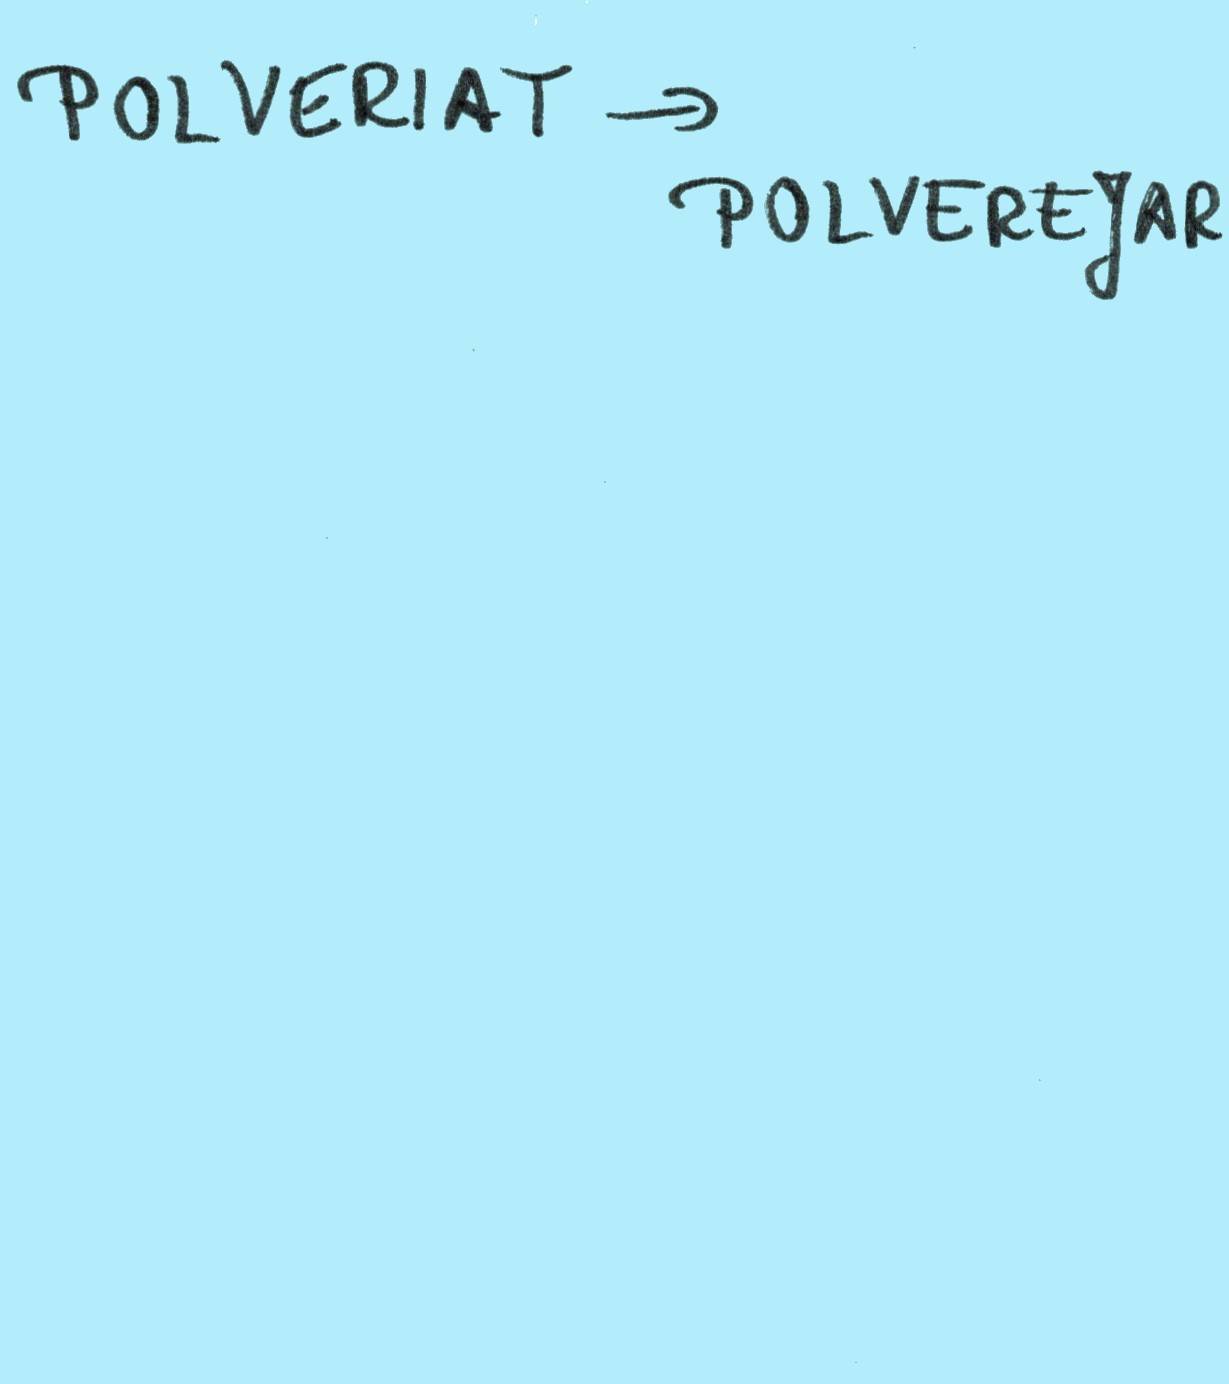 POLVERIAT →
POLVEREJAR